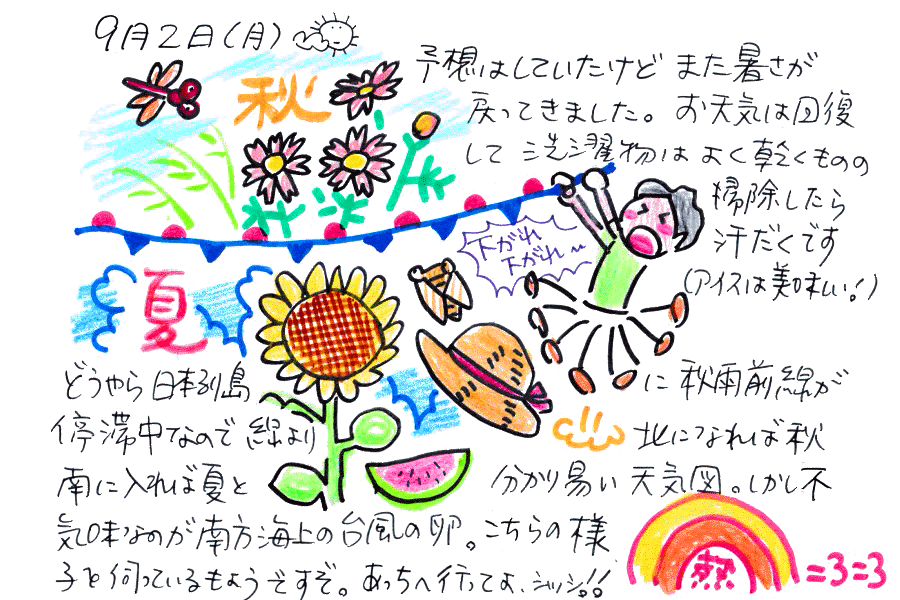 9月2日(月)
予想はしていたけど また暑さが
戻ってきました。お天気は回復
して 洗濯物は よく乾くものの
掃除したら
汗だくです
(アイスは美味しい!)
秋
下がれ
下がれ〜
夏
どうやら日本列島に秋雨前線が
停滞中なので 線より北になれば秋
南に入れば夏と分かり易い 天気図。しかし不
気味なのが南方海上の台風の卵。こちらの様
子を伺っているもようですぞ。あっちへ行ってよ、シッシ!!
熱
=3=3